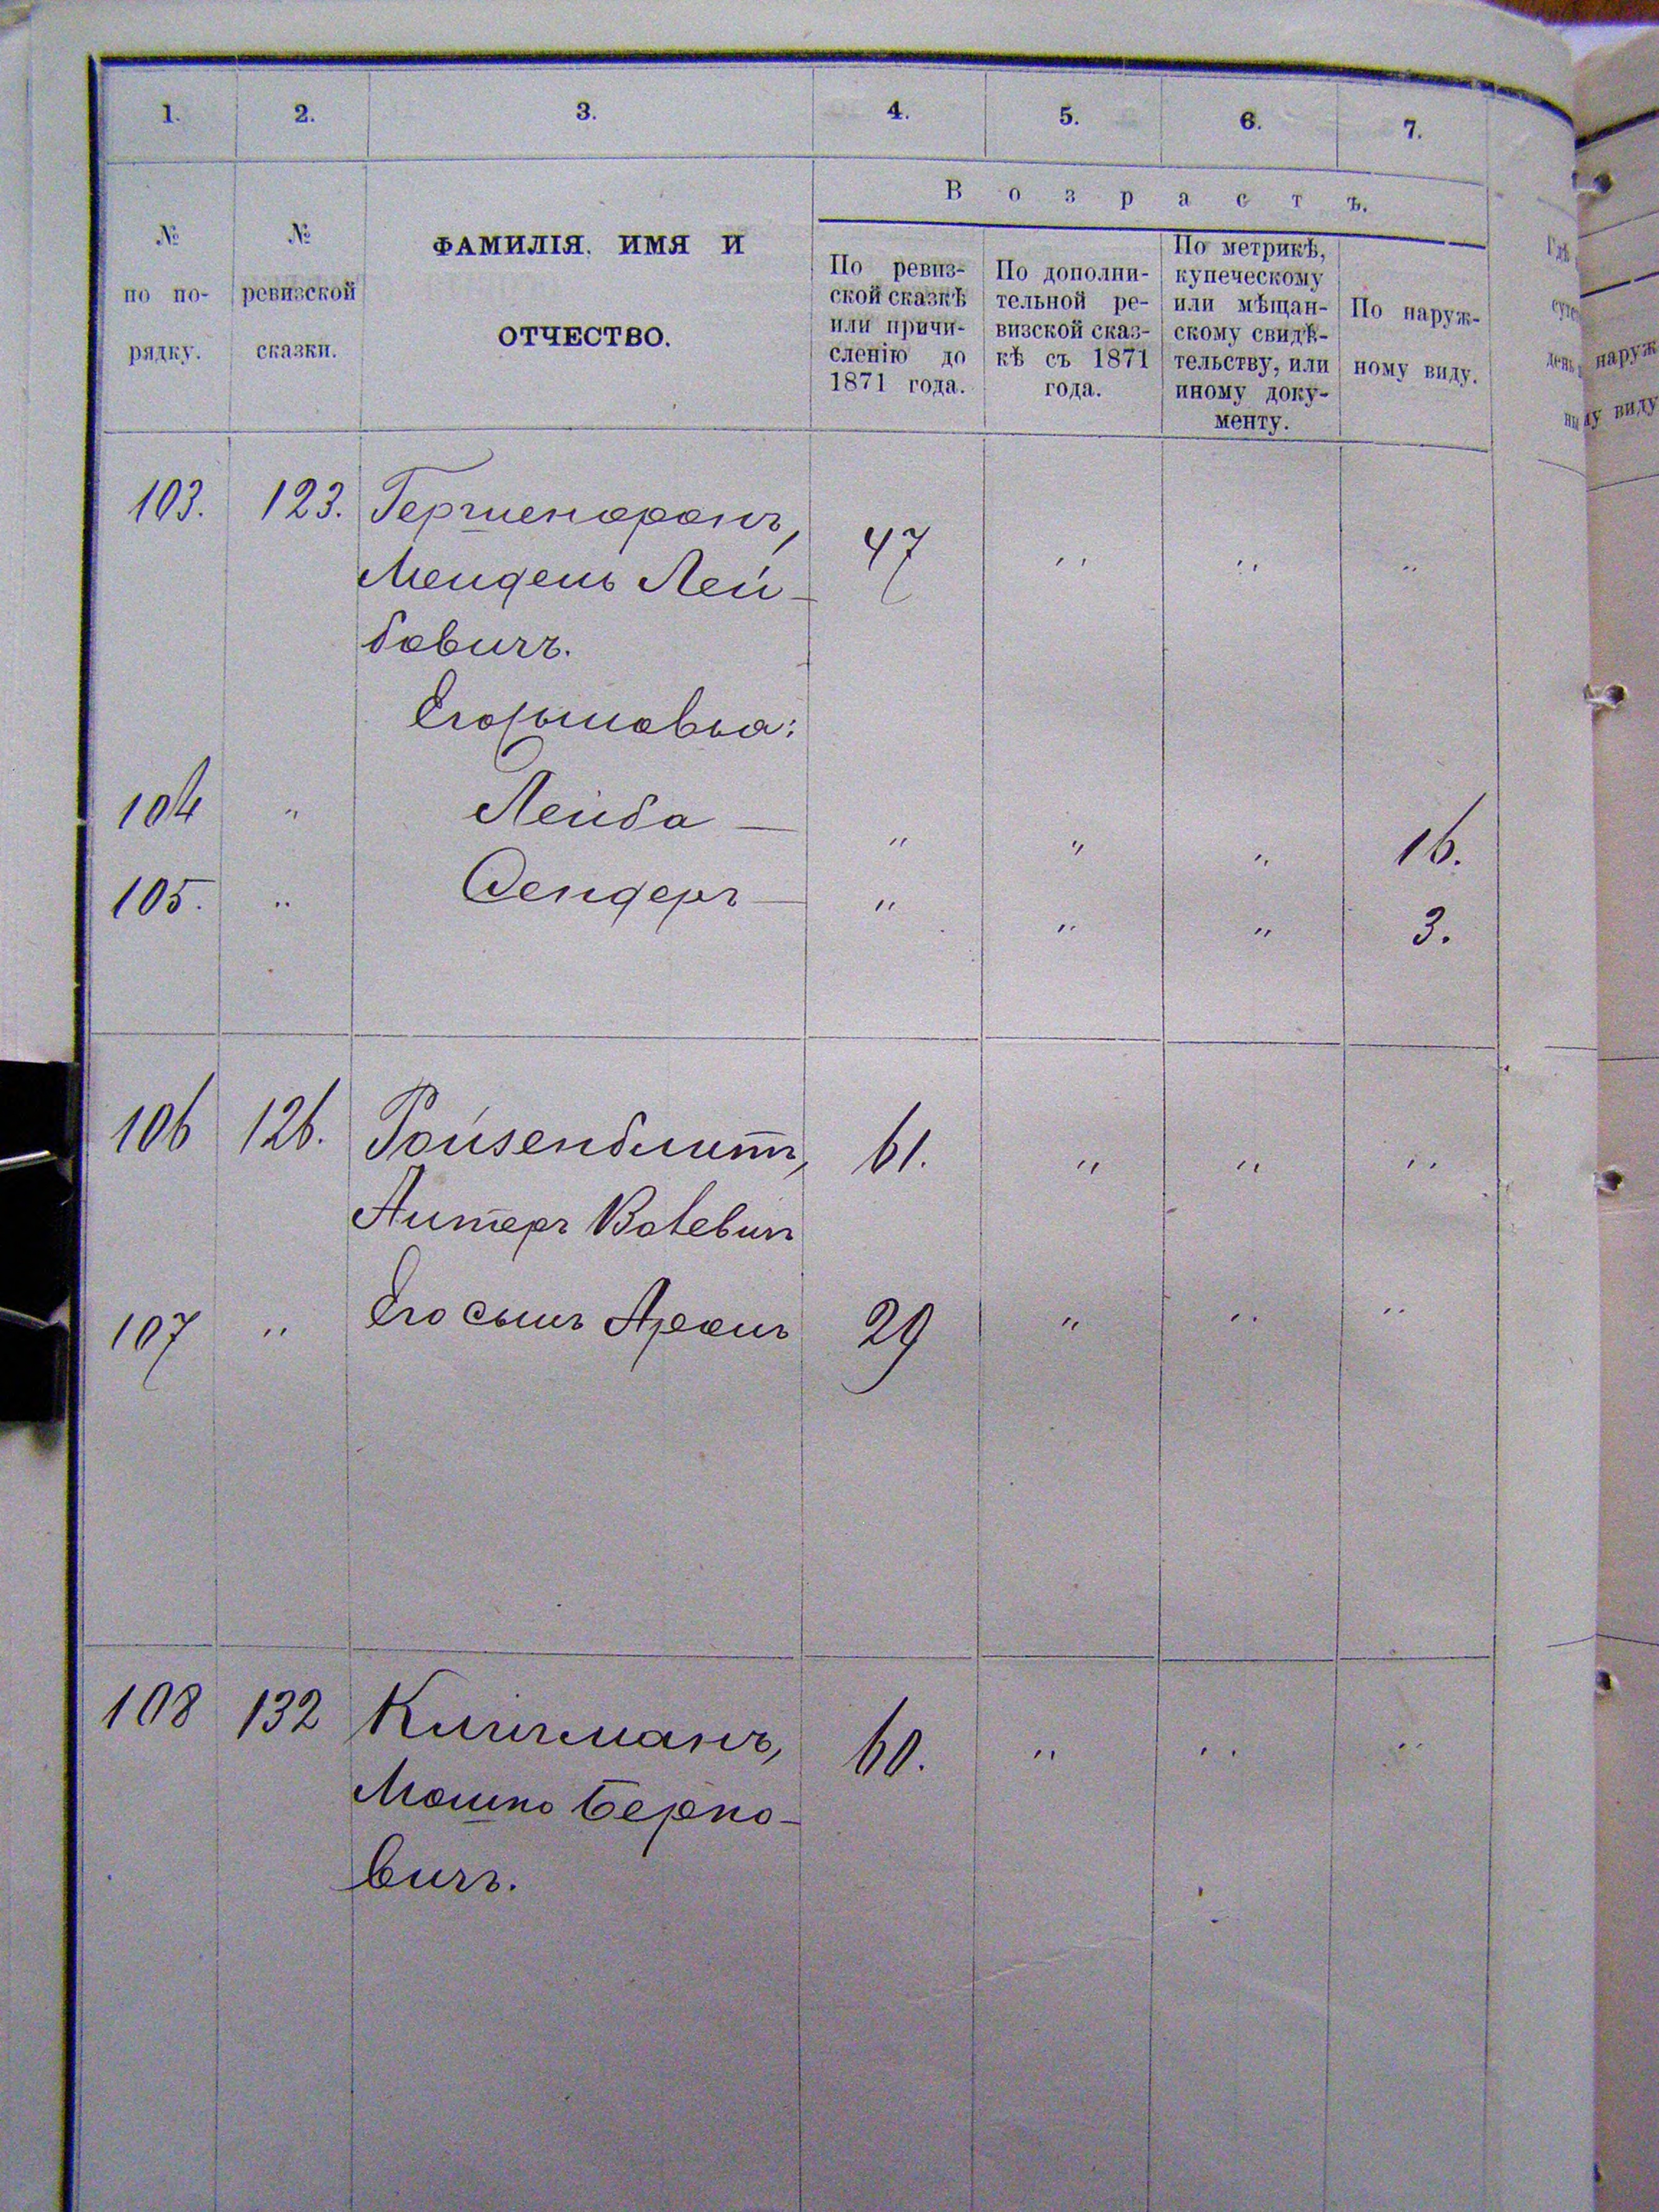 1. 2. 3. 4. 5. 6. 7.
№ по по-рядку.
№ ревизской сказки.
ФАМИЛІЯ, ИМЯ И
ОТЧЕСТВО.
Возрастъ.
По ревиз-
ской сказкѣ
или причи-
сленію до
1871 года.
По дополни-
тельной ре-
визской сказ-
кѣ съ 1871
года.
По метрикѣ,
купеческому
или мѣщан-
скому свидѣ-
тельству, или
иному доку-
менту.
По наруж-
ному виду.
103. 123. 47 " " "
Мендель Лей-
бовичъ.
Его сыновья:
104 " Лейба — " " " 16.
105. " Сендеръ — " " " 3.
106 126. Ройзенблитъ, 61. " " "
107 " Его сынъ Аронъ 29 " " "
108 132 60. " " "
Мошко Берко-
вичъ.
наруж
му виду